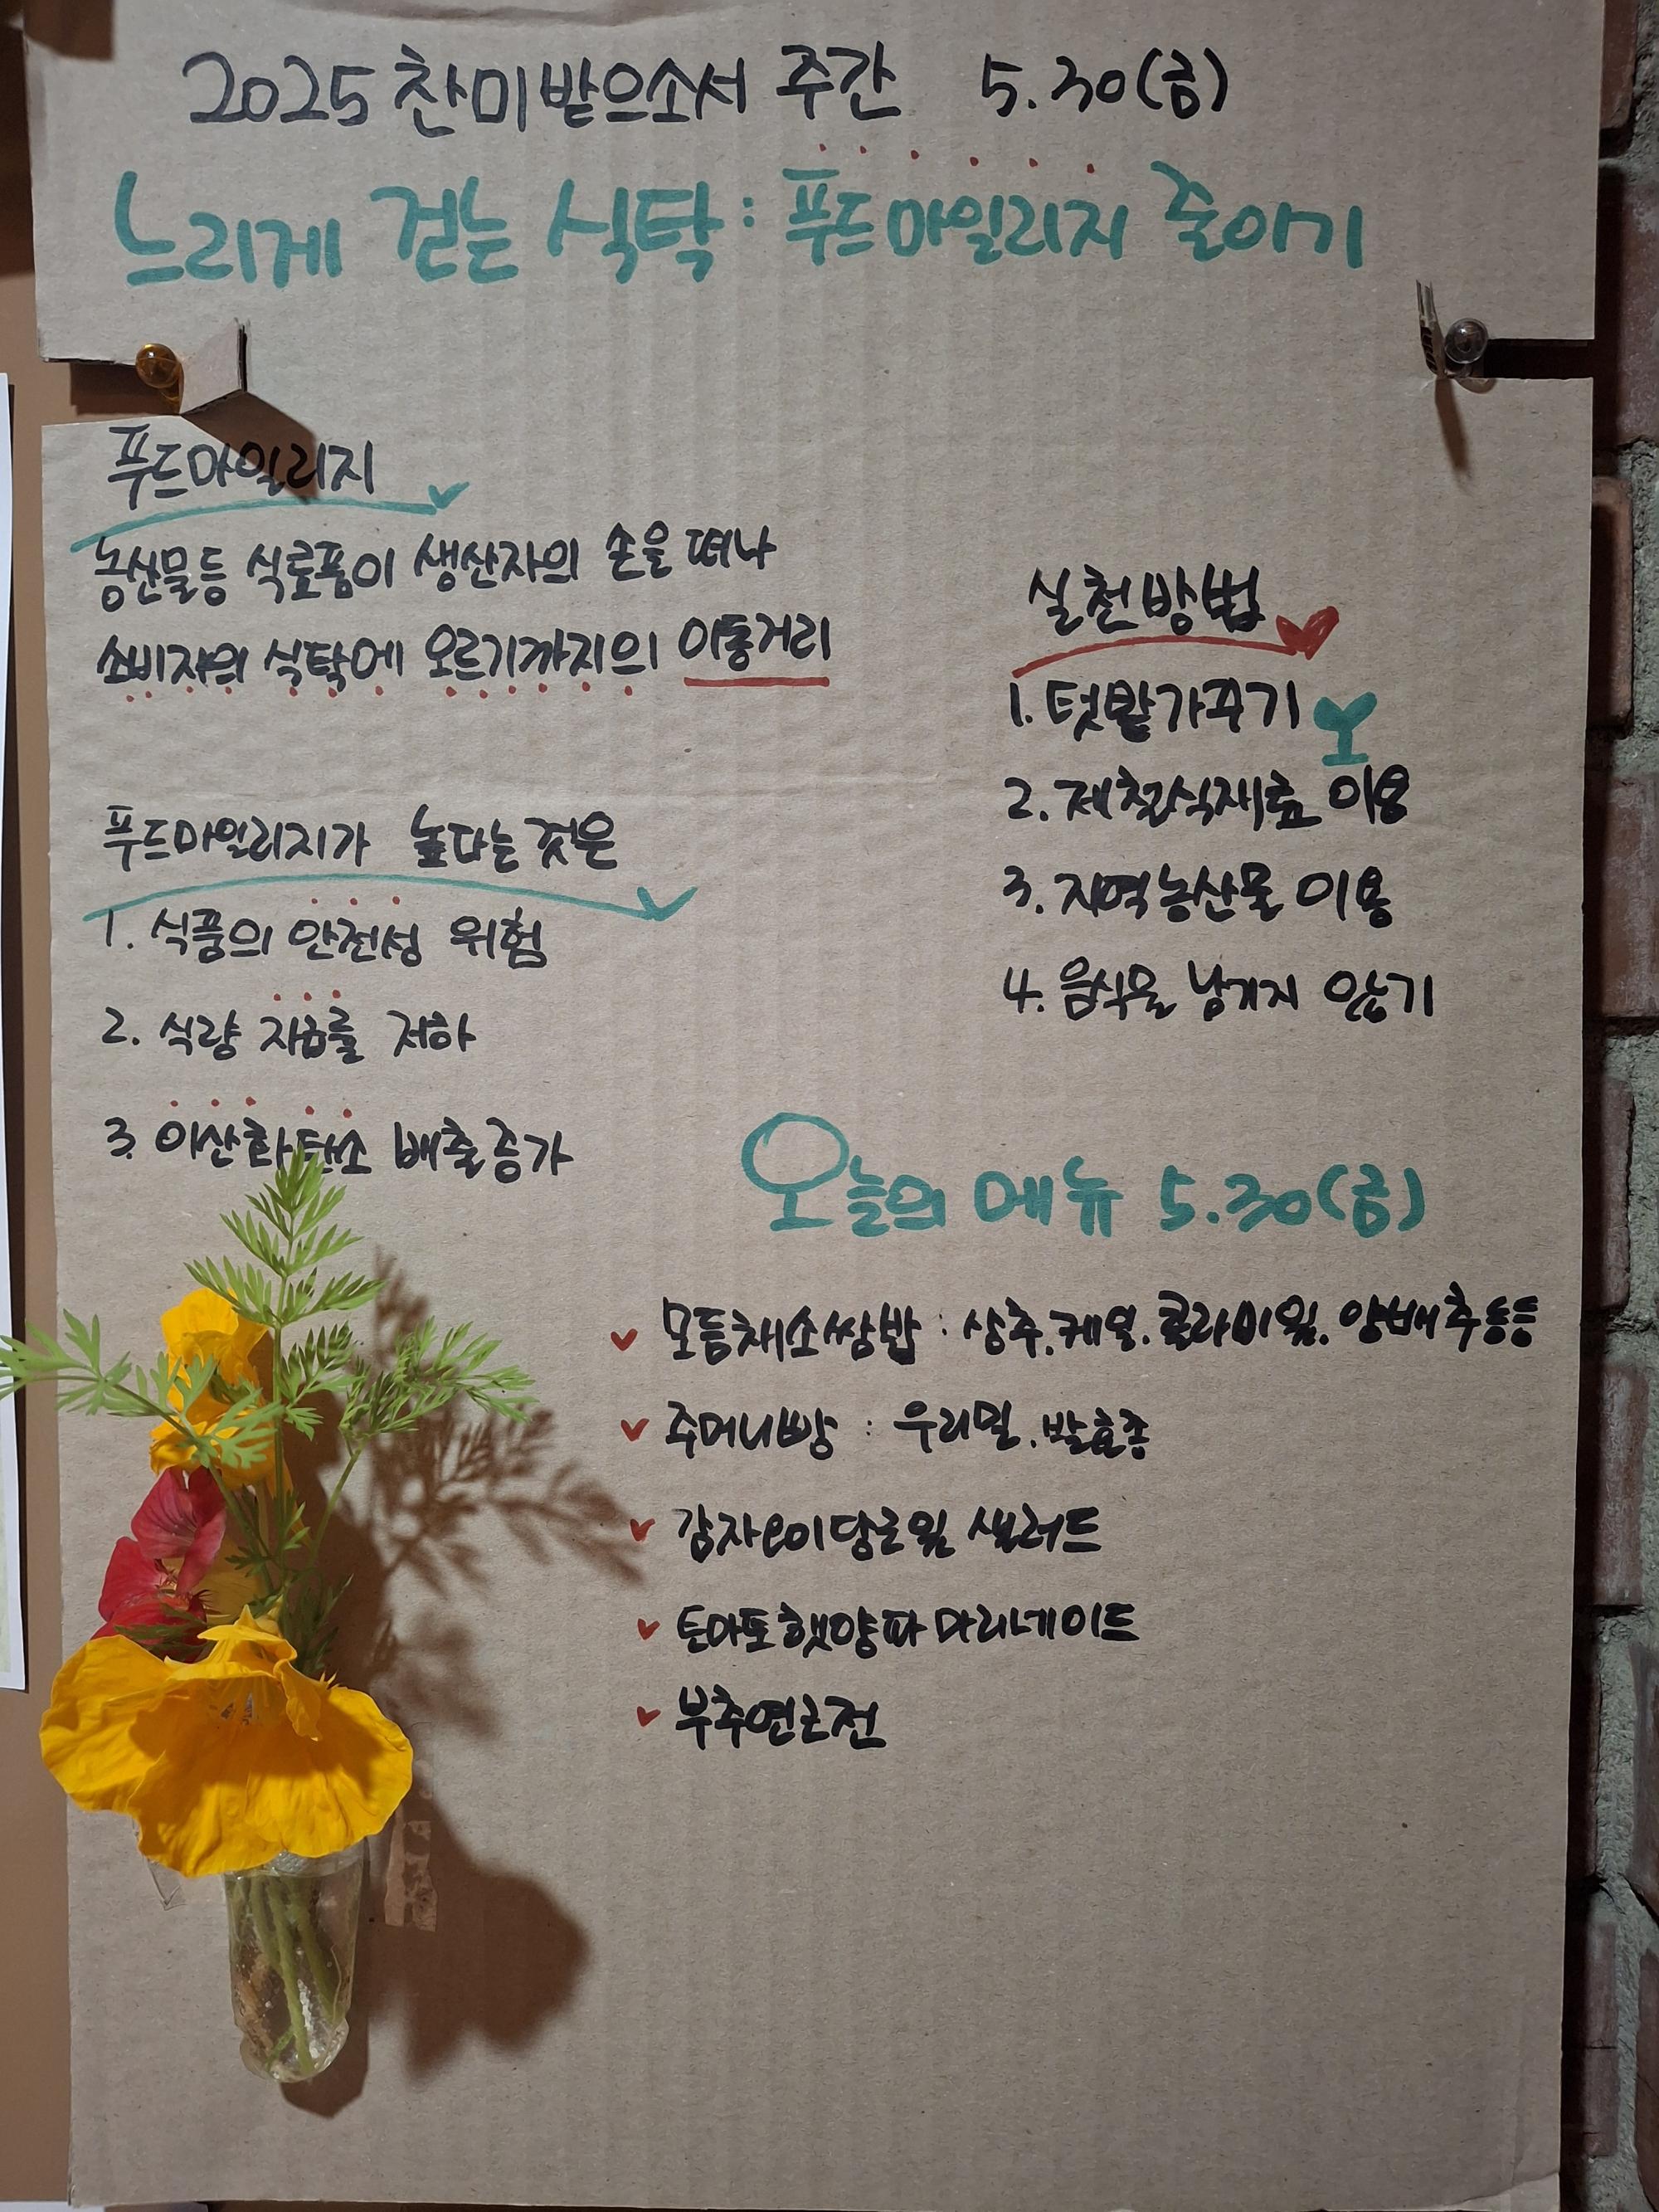 2025 찬미받으소서 주간 5.30(금)
느리게 걷는 식탁: 푸드마일리지 줄이기
푸드마일리지
농산물등 식료품이 생산자의 손을 떠나
소비자의 식탁에 오르기까지의 이동거리
푸드마일리지가 높다는 것은
1. 식품의 안전성 위험
2. 식량 자급률 저하
3. 이산화탄소 배출증가
실천방법
1. 텃밭가꾸기
2. 제철식재료 이용
3. 지역농산물 이용
4. 음식물 남기지 않기
오늘의 메뉴 5.30(금)
모듬채소쌈밥 : 상추.케일.콜라비잎.양배추등등
주머니빵 : 우리밀.발효종
감자오이당근잎 샐러드
토마토햇양파 마리네이드
부추연근전